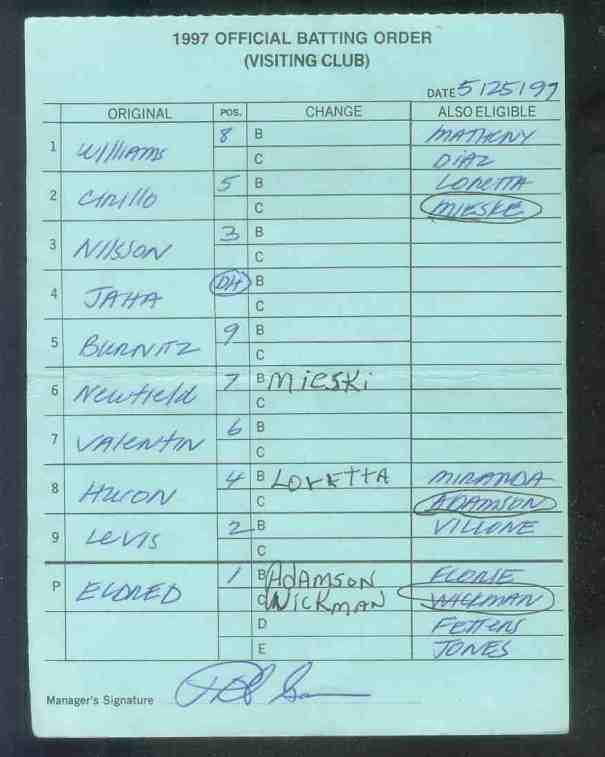 1997 OFFICIAL BATTING ORDER
(VISITING CLUB)
DATE 5/25/97
ORIGINAL POS. CHANGE ALSO ELIGIBLE
1 Williams 8 B MATHENY
C DIAZ
2 Cirillo 5 B LORETTA
C MIESKE
3 NILSSON 3 B
C
4 JAHA DH B
C
5 BURNITZ 9 B
C
6 Newfield 7 B MIESKI
C
7 VALENTIN 6 B
C
8 HUSON 4 B LORETTA MIRANDA
C ADAMSON
9 LEVIS 2 B VILLONE
C
P ELDRED 1 B ADAMSON FLORIE
C WICKMAN WICKMAN
D FETTERS
E JONES
Manager's Signature